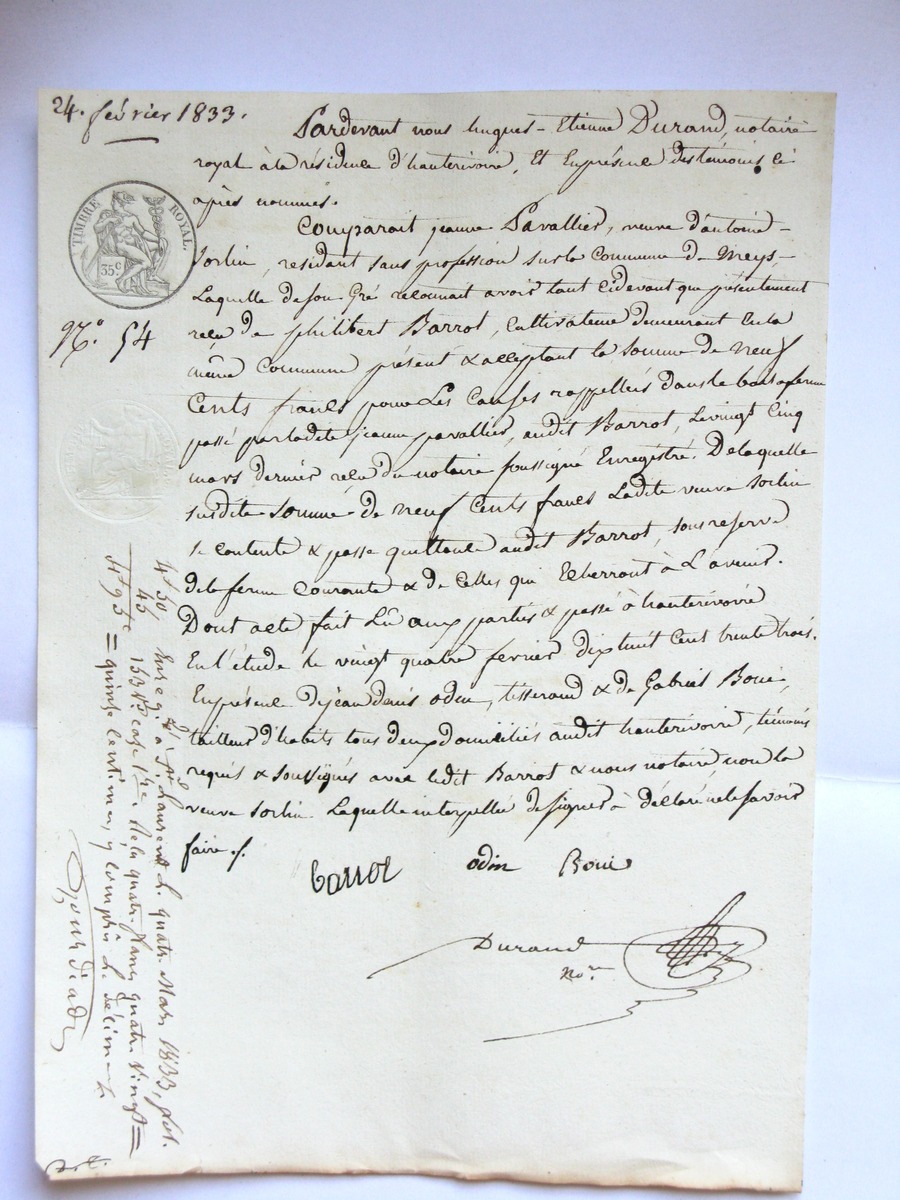 24. février 1833.
Pardevant nous hugues-Etienne Durand, notaire
royal à la résidence d'hauterivoire, Et Enprésence destémoins ci
après nommés.
TIMBRE ROYAL.
35 c
Comparait jeanne Pavallier, veuve d'antoine
Sorlin, residant sans profession sur la Commune de Meys,
Laquelle deson Gré reconnait avoir tant cidevant que présentement
reçu de philibert Barrot, Cultivateur demeurant Enla
même Commune présent & acceptant la Somme de neuf
N.° 54
Cents francs pour Les Causes rappellées dansle bail a ferme
passé parladite jeanne pavallier, audit Barrot, Levingt Cinq
mars dernier reçu du notaire soussigné Enregistré. Delaquelle
susdite Somme de neuf Cents francs Ladite veuve Sorlin
se contente & passe quittance audit Barrot, sous reserve
dela ferme Courante & de Celles qui Echerront à L'avenir.
Dont acte fait Lû aux parties & passé à hauterivoire
En l'étude le vingt quatre fevrier dix huit Cent trente trois.
Enprésence dejean Denis Odin, tisserand & de Gabriel Boui,
tailleur d'habits tous deux domiciliés audit hauterivoire, témoins
requis & soussignés avec ledit Barrot & nous notaire non la
veuve Sorlin Laquelle interpellée designer à déclaré nele savoir
faire ./.
barrot
odin
Boui
Durand
No.re
4f 50,
45
4f 95c
Enreg. à St Laurent Le quatre Mars 1833, fol.
153 Vo case 1re. Reçu quatre francs quatre Vingt =
= quinze centimes, y compris Le décime